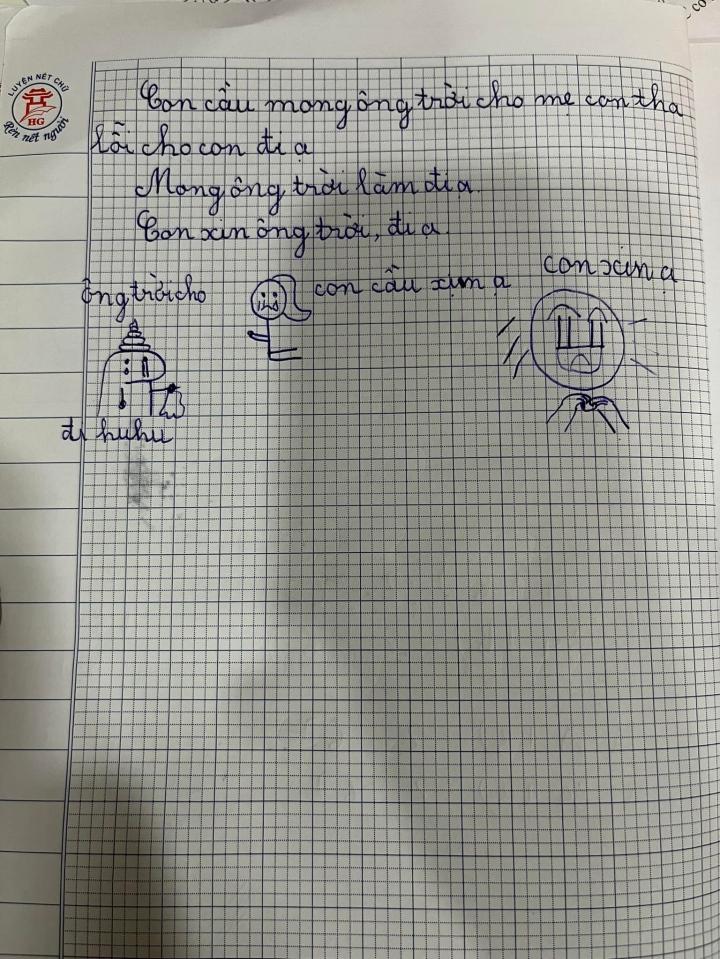 LUYỆN NÉT CHỮ
HG
Rèn nết người
Con cầu mong ông trời cho mẹ con tha
lỗi cho con đi ạ
Mong ông trời làm đi ạ.
Con xin ông trời, đi ạ.
con xin ạ
ông trời cho
con cầu xin ạ
đi huhu